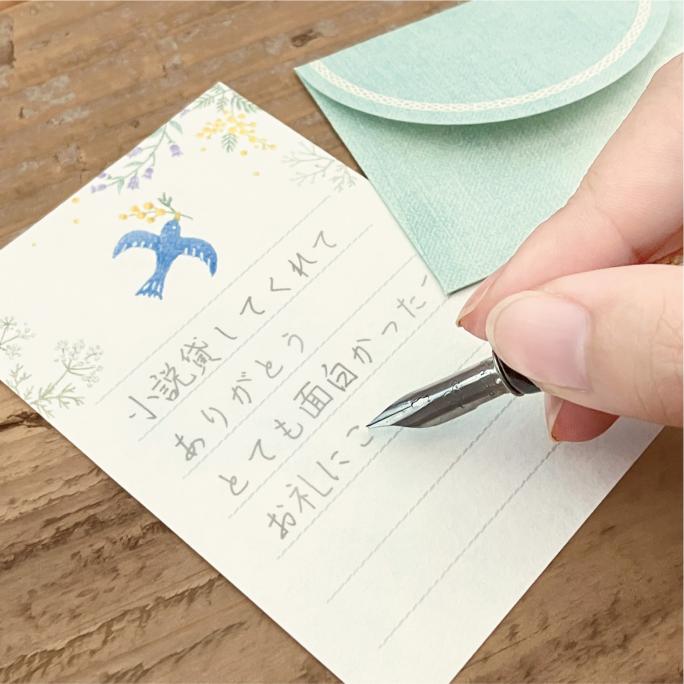 小説貸してくれて
ありがとう
とても面白かった
お礼にこ